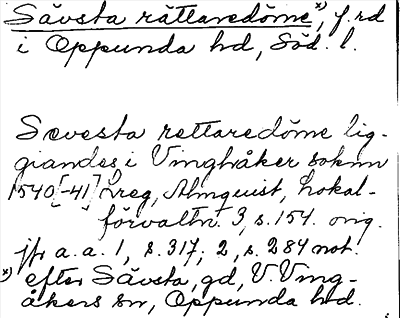 Sävsta rättaredöme x), f.rd
i Oppunda hd, Söd. l.
Sævesta rettaredöme lig-
giandes i Vinghåker soknn
1540[-41] Åreg, Almquist, Lokal-
förvaltn. 3, s. 154. orig.
jfr a.a. 1, s. 317; 2, s. 284 not.
x) efter Sävsta, gd, V. Ving-
åkers sn, Oppunda hd.